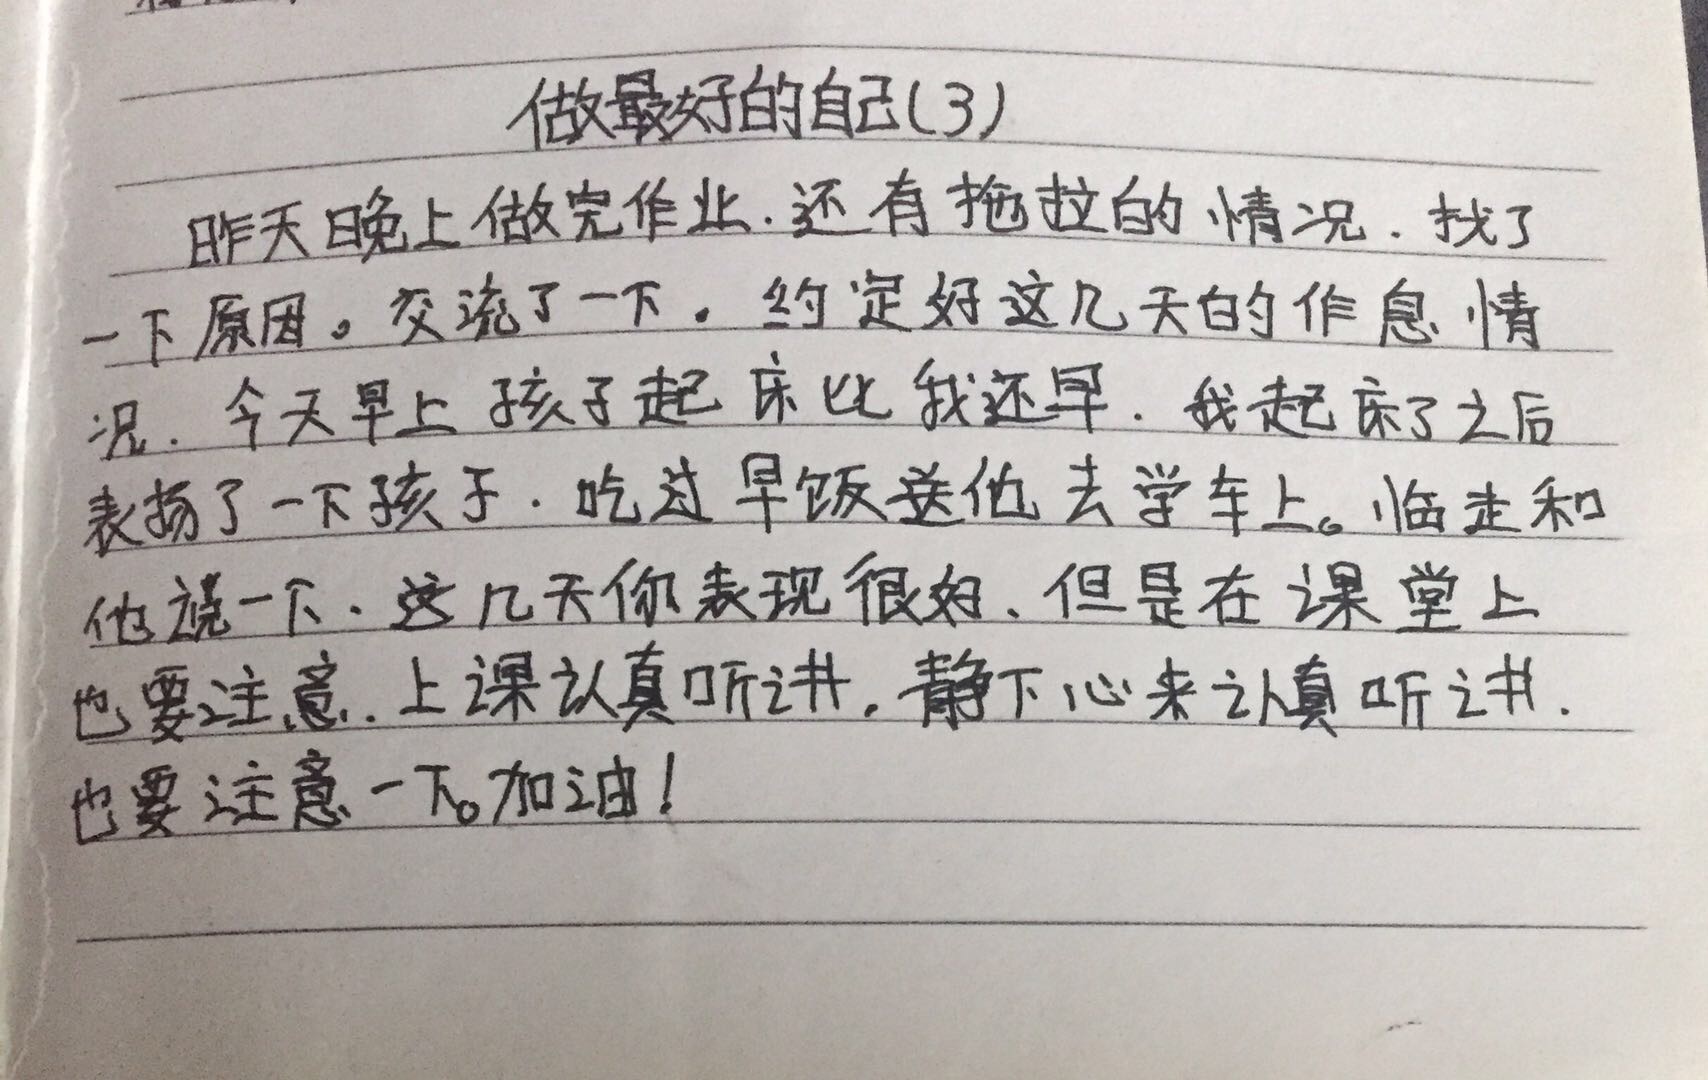 做最好的自己(3)
昨天晚上做完作业.还有拖拉的情况.找了
一下原因。交流了一下.约定好这几天的作息情
况.今天早上孩子起床比我还早.我起床了之后
表扬了一下孩子.吃过早饭送他去学车上。临走和
他说一下.这几天你表现很好、但是在课堂上
也要注意.上课认真听讲.静下心来认真听讲.
也要注意一下。加油!